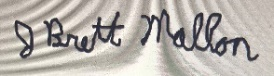 J Brett Mallon